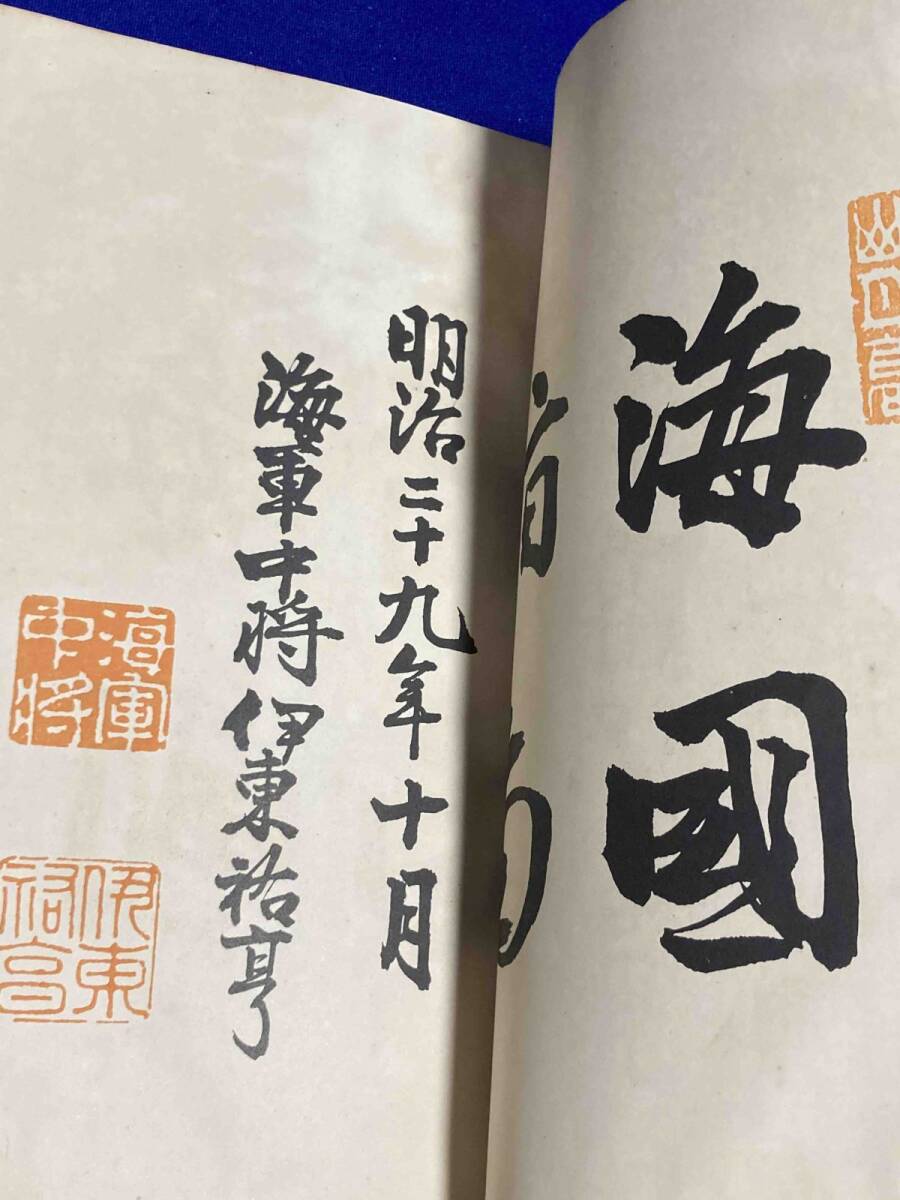 海國
明治二十九年十月
海軍中將伊東祐亨
海軍中將
伊東祐亨